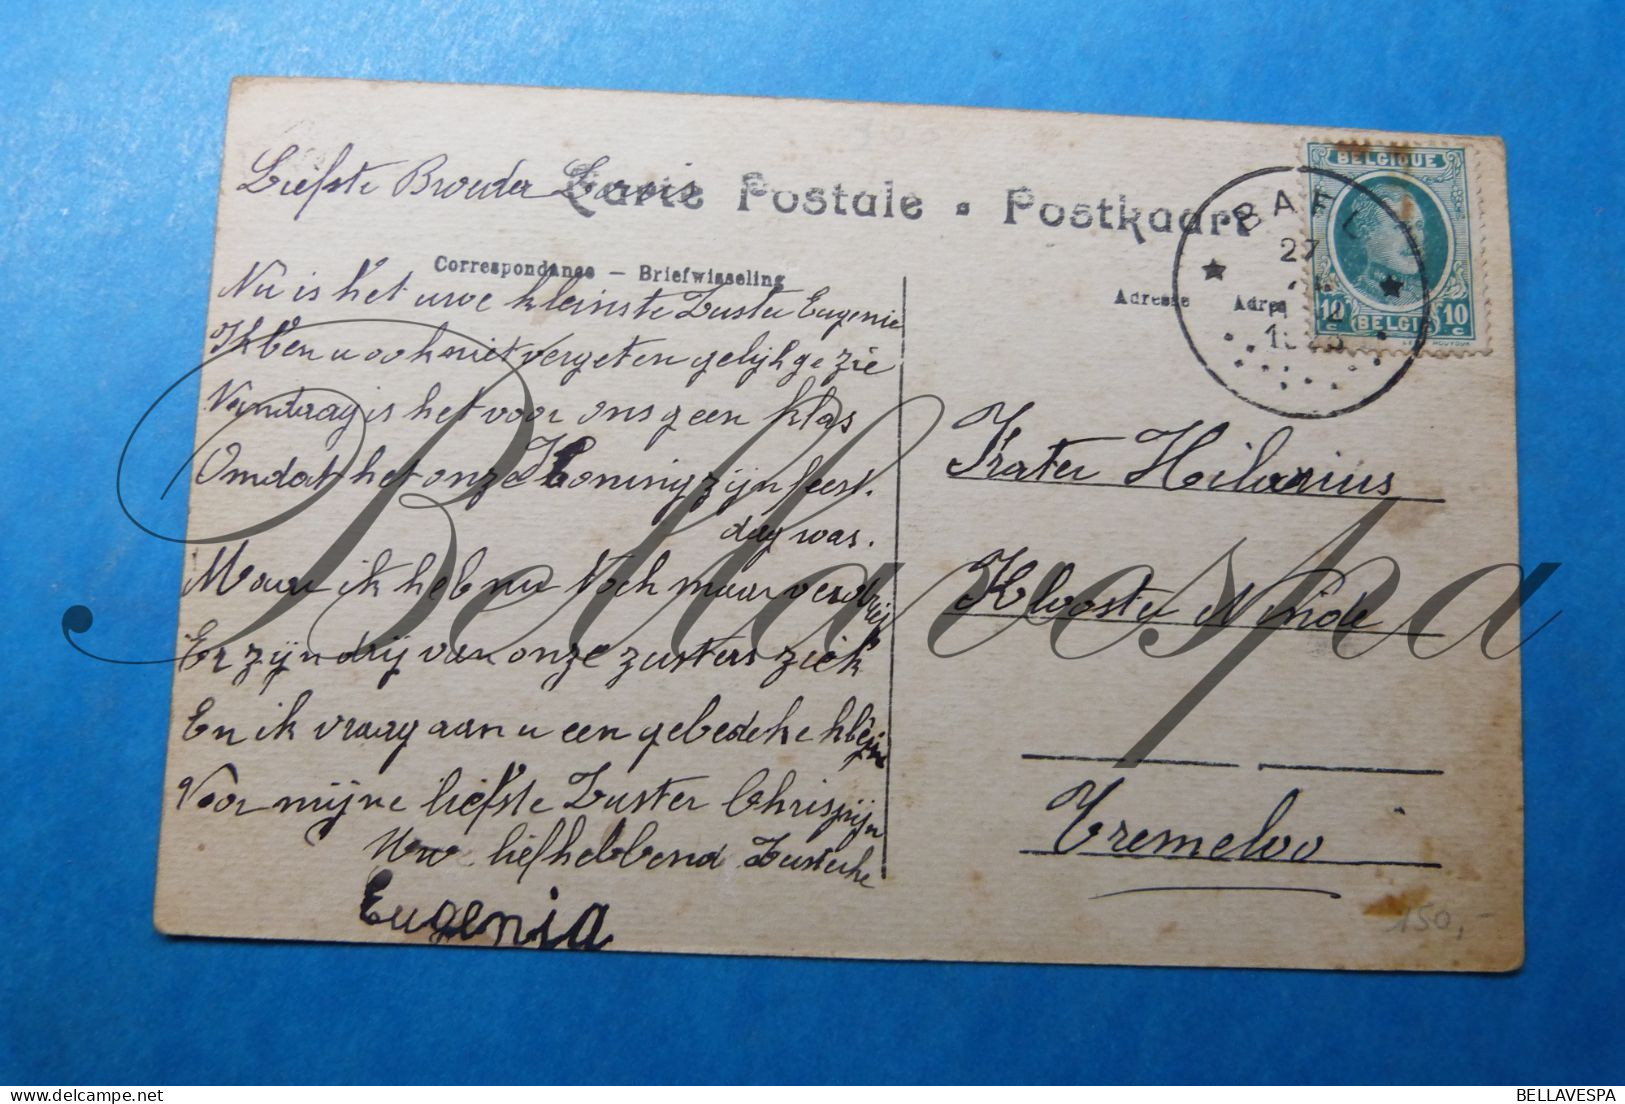 Liefste Broeder Louis
Carte Postale • Postkaart
Correspondance — Briefwisseling
Nu is het uwe kleinste Zuster Eugenie
Ik ben u ook niet vergeten gelijk ge zie
Vandaag is het voor ons geen klas
Omdat het onze Koning zijn feest.
dag was.
Maar ik heb nu noch maar verdriet
Er zijn drij van onze zusters ziek
En ik vraag aan u een gebedeke klein
Voor mijne liefste Zuster Chrisjijn
Uw liefhebbend Zusterke
Eugenia
Adresse Adres
BAEL
27
BELGIQUE
10c 10c
BELGIË
Frater Hilarius
Klooster Ninde
Tremeloo
150,-
Bellavespa
BELLAVESPA